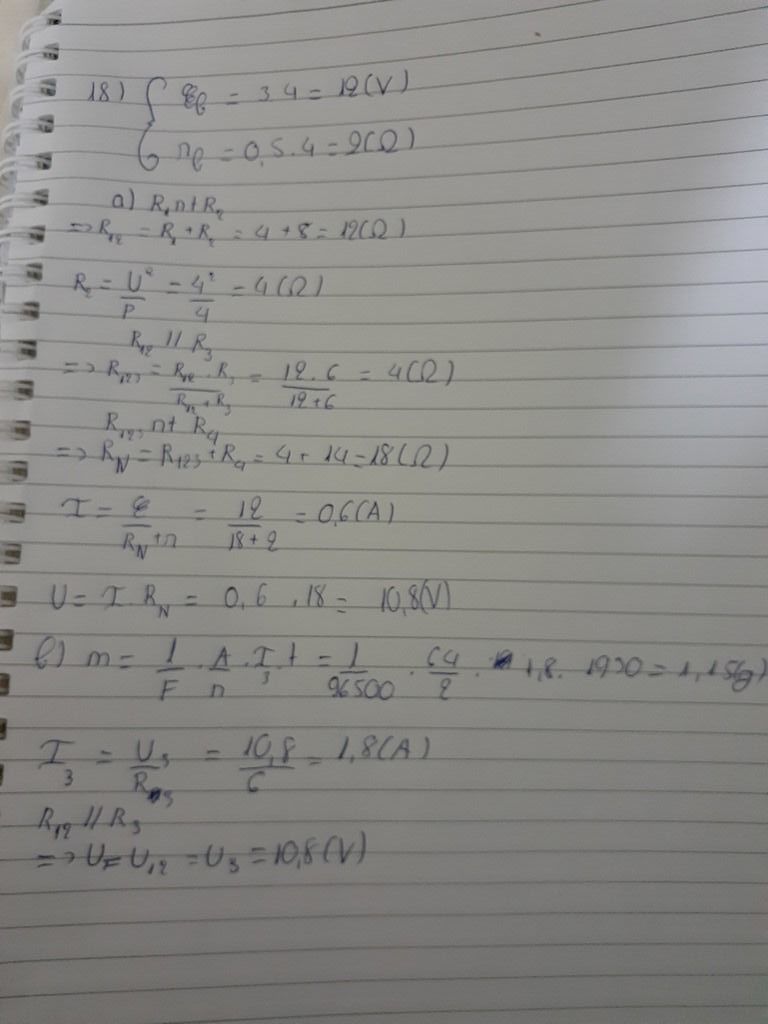 18) { ξb = 3.4 = 12(V)
rb = 0,5.4 = 2(Ω)
a) R1 nt R2
=> R12 = R1 + R2 = 4 + 8 = 12(Ω)
R2 = U²/P = 4²/4 = 4(Ω)
R12 // R3
=> R123 = R12 . R3 / R12 + R3 = 12 . 6 / 12 + 6 = 4(Ω)
R123 nt R4
=> RN = R123 + R4 = 4 + 14 = 18(Ω)
I = ξ / RN + r = 12 / 18 + 2 = 0,6(A)
U = I . RN = 0,6 . 18 = 10,8(V)
b) m = 1/F . A/n . I3 t = 1/96500 . 64/2 . 1,8 . 1930 = 1,15(g)
I3 = U3/R3 = 10,8/6 = 1,8(A)
R12 // R3
=> U = U12 = U3 = 10,8(V)